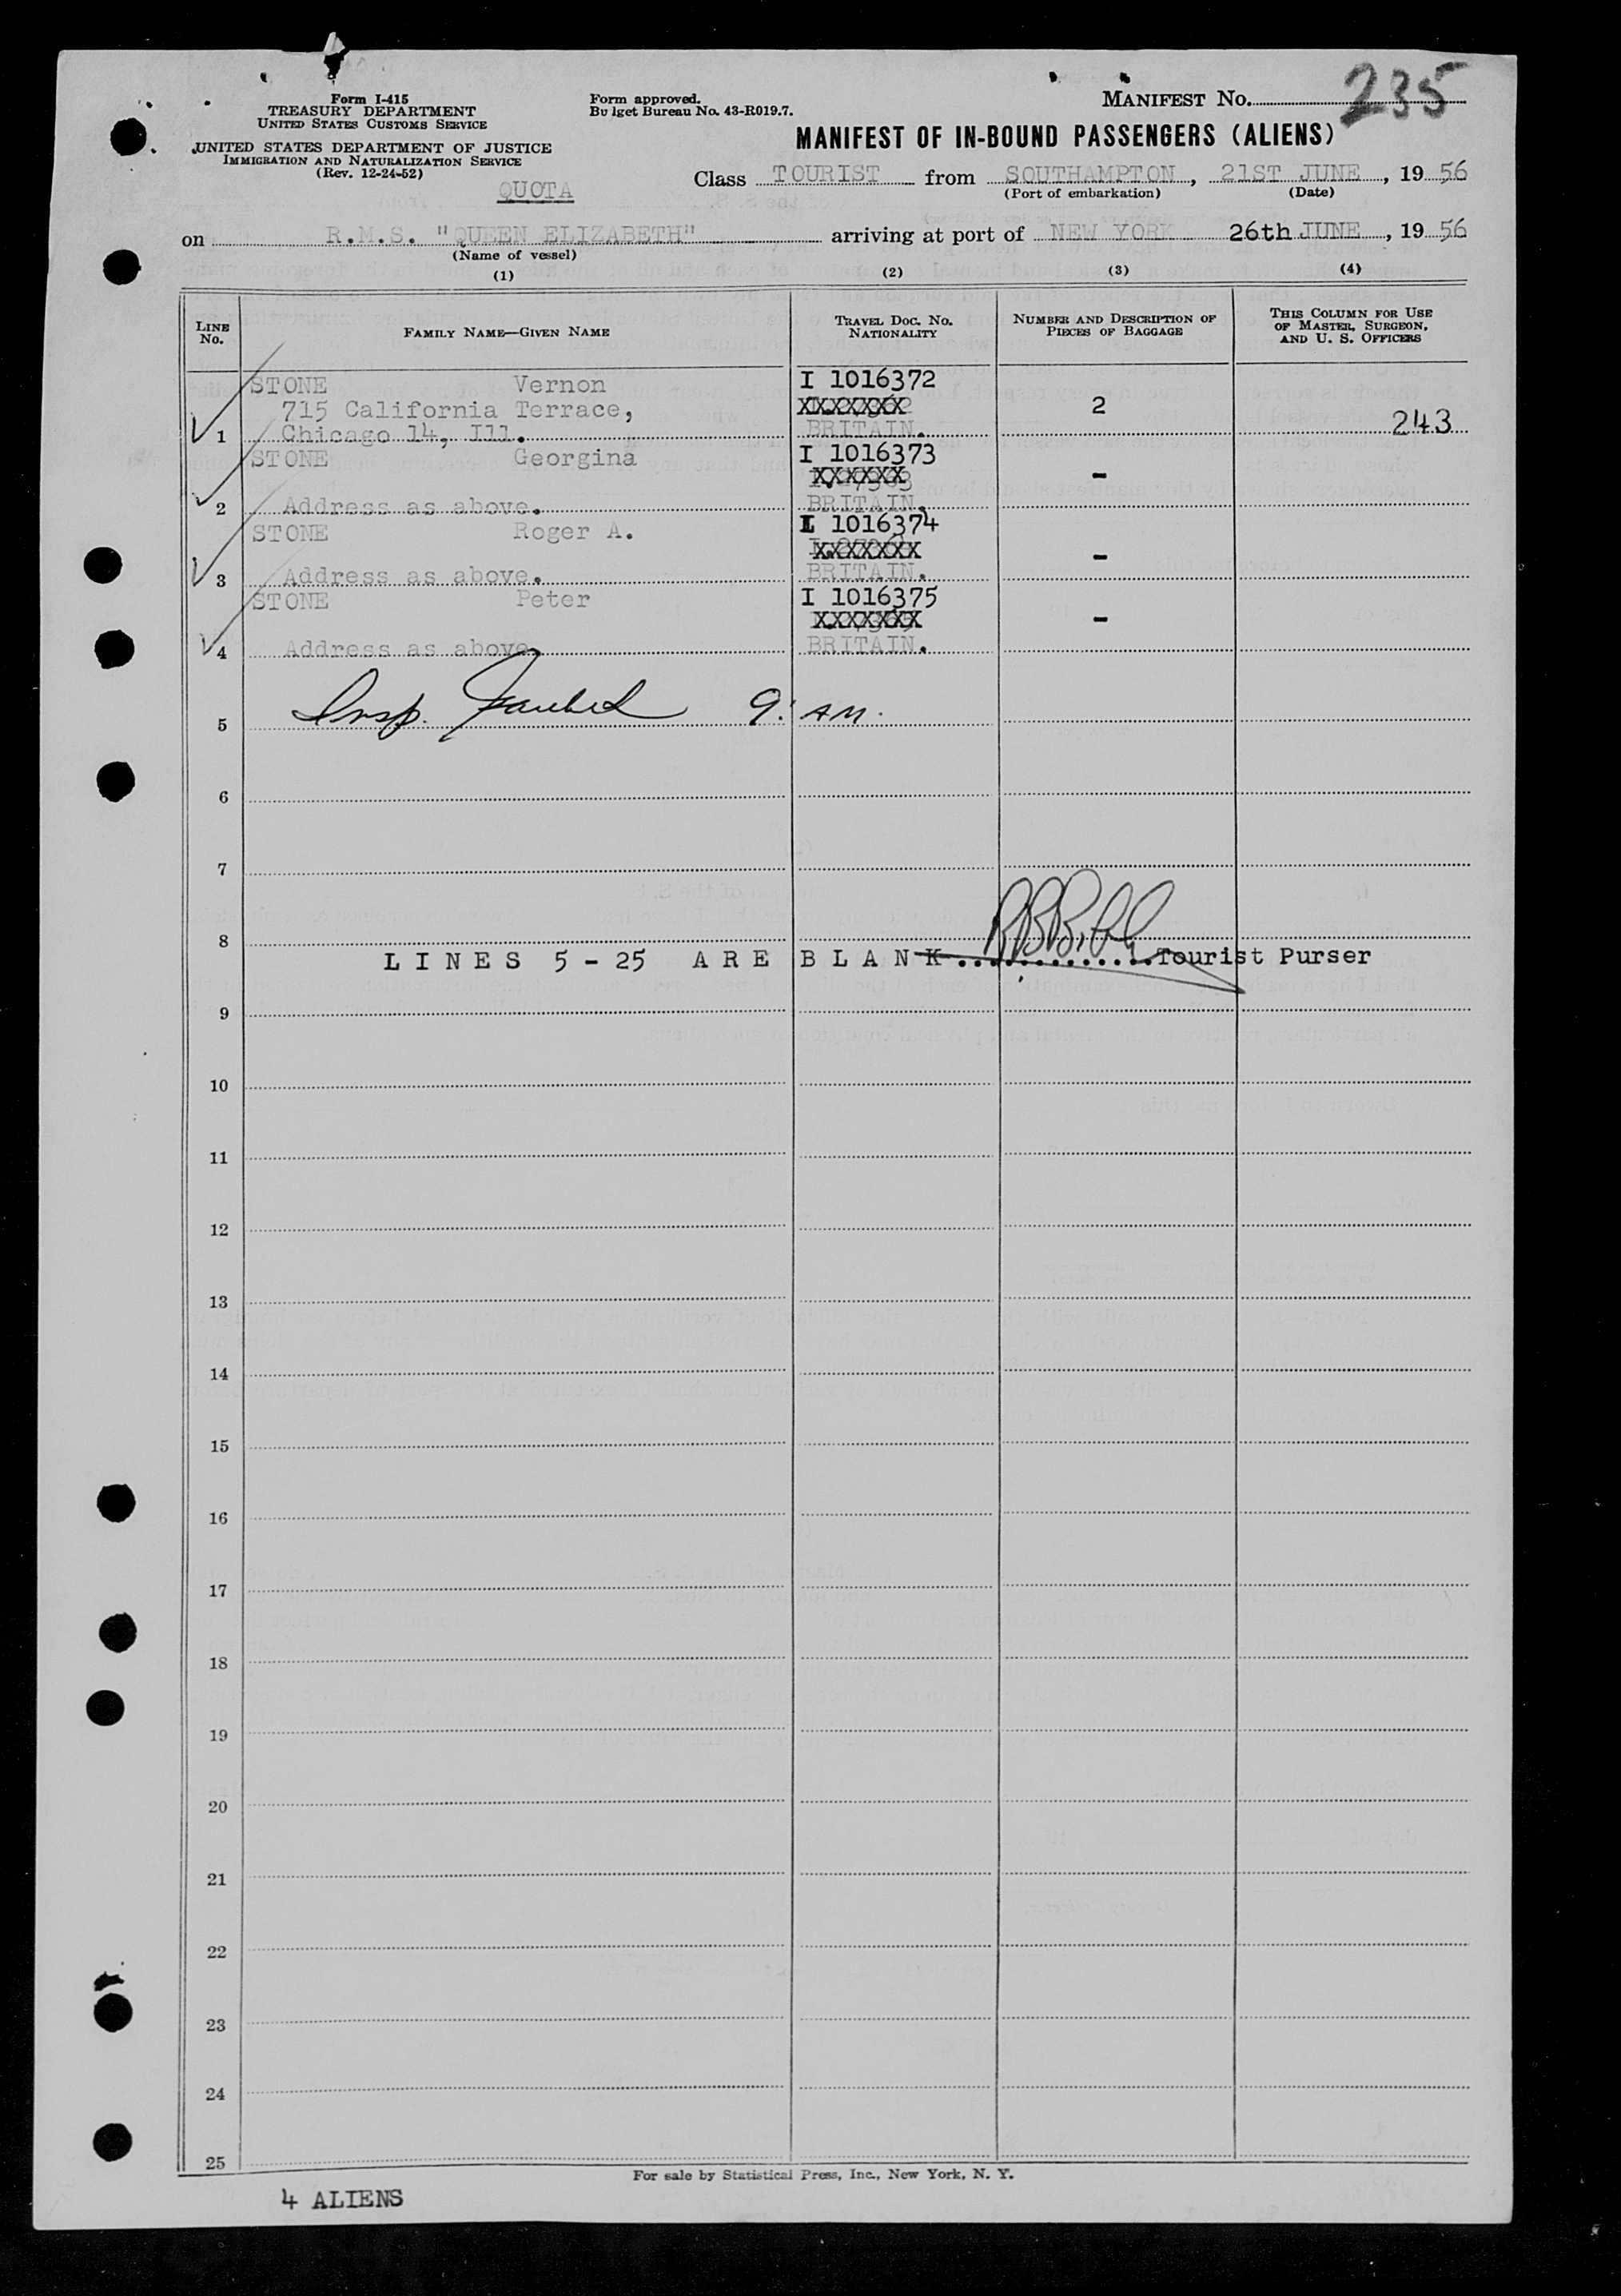 Form I-415
TREASURY DEPARTMENT
UNITED STATES CUSTOMS SERVICE
UNITED STATES DEPARTMENT OF JUSTICE
IMMIGRATION AND NATURALIZATION SERVICE
(Rev. 12-24-52)
Form approved.
Budget Bureau No. 43-R019.7.
MANIFEST No. 235
MANIFEST OF IN-BOUND PASSENGERS (ALIENS)
QUOTA
Class TOURIST from SOUTHAMPTON, 21ST JUNE, 19 56
(Port of embarkation) (Date)
on R.M.S. "QUEEN ELIZABETH" arriving at port of NEW YORK 26th JUNE, 19 56
(Name of vessel)
(1) (2) (3) (4)
LINE No. FAMILY NAME—GIVEN NAME TRAVEL DOC. NO. NATIONALITY NUMBER AND DESCRIPTION OF PIECES OF BAGGAGE THIS COLUMN FOR USE OF MASTER, SURGEON, AND U. S. OFFICERS
STONE Vernon I 1016372
715 California Terrace, XXXXXXX 2
1 Chicago 14, Ill. BRITAIN. 243
STONE Georgina I 1016373
XXXXXX -
2 Address as above. BRITAIN.
STONE Roger A. I 1016374
XXXXXXX -
3 Address as above. BRITAIN.
STONE Peter I 1016375
XXXXXXX -
4 Address as above. BRITAIN.
5 Insp. 9: AM.
6
7
8
LINES 5-25 ARE BLANK. Tourist Purser
9
10
11
12
13
14
15
16
17
18
19
20
21
22
23
24
25
For sale by Statistical Press, Inc., New York, N. Y.
4 ALIENS